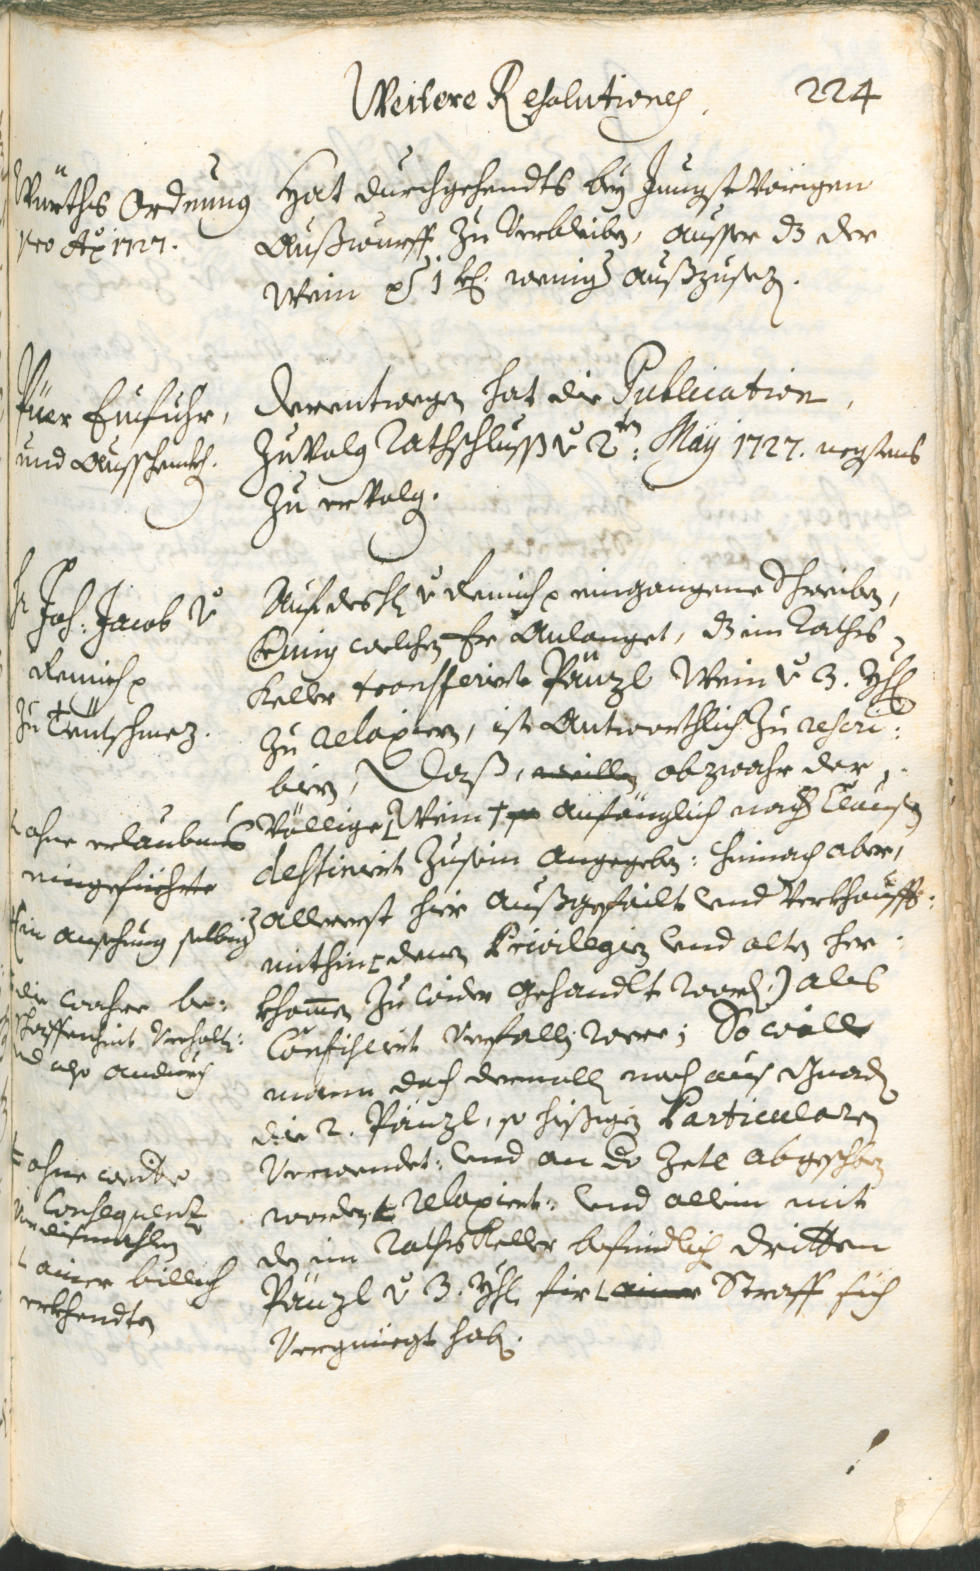 Weitere Resolutiones.
224
Würths Ordnung
pro Aō 1727.
Hat durchgehendts bey Jüngst Vorigen
Außwurff Zu Verbleiben, ausser dz der
Wein p 1 kr. weniger außzusezen.
Pier Einfuhr,
und Ausschenkh.
Derentwegen hat die Publication,
Zu Volg Rathschluss v 2ten: Maÿ 1727. negstens
Zu erVolgen.
H
Joh: Jacob v
Remich
Zu Teütschmez.
Auf des H v Remich eingangene Schreiben,
Crang welchen Er Anlanget, dz im Raths
Keller transferirte Pänzl Wein v 3. Yhrn
Zu relaxiern, ist Antworthlich Zu rescri:
biern, Daß, weillen obzwahr der
Völlige Wein anfänglich nach Clausen
destinirt Zusein angegeben: hernach aber,
allererst hier außgefailt und Verkhaufft:
mithin denen Privilegien und alten her:
khomen Zu wider gehandlt worden) als
Confiscirt Verfallen were; So wolle
mann doch dermallen noch aus Gnaden
die 2. Pänzl, so hießigen Particularen
Verwendet: und an Do Zete abgeschben
worden relaxirt: und allein mit
den im RathsKeller befindlich dritten
Pänzl v 3. Yhrn für einer Straff sich
Vergnüegt haben.
ohne erlaubnus
eingeführte
in ansehung selbiger
die wahre be:
schaffenheit Verhalten:
und also andurch
ohne weitere
Consequenz
Vor dismahlen
ainer billich
erkhendten